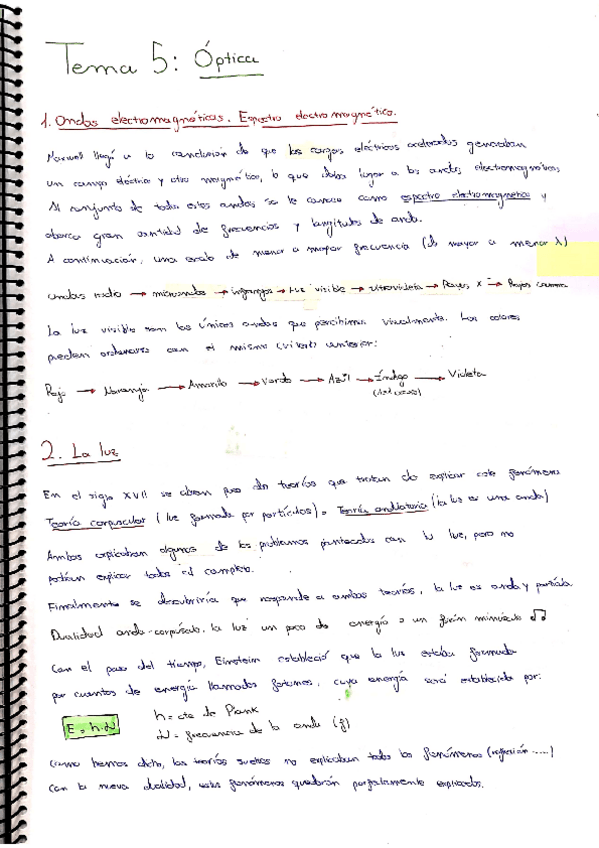 Tema 5: Óptica
1. Ondas electromagnéticas. Espectro electromagnético.
Maxwell llegó a la conclusión de que las cargas eléctricas aceleradas generaban
un campo eléctrico y otro magnético, lo que daba lugar a las ondas electromagnéticas.
Al conjunto de todas estas ondas se le conoce como espectro electromagnético y
abarca gran cantidad de frecuencias y longitudes de onda.
A continuación, una escala de menor a mayor frecuencia (de mayor a menor λ)
ondas radio → microondas → infrarrojos → luz visible → ultravioleta → Rayos X → Rayos gamma
La luz visible son las únicas ondas que percibimos visualmente. Los colores
pueden ordenarse con el mismo criterio anterior:
Rojo → Naranja → Amarillo → Verde → Azul → Índigo → Violeta
2. La luz
En el siglo XVII se crean dos teorías que tratan de explicar este fenómeno
Teoría corpuscular (luz formada por partículas) o Teoría ondulatoria (la luz es una onda)
Ambas explicaban algunos de los problemas planteados con la luz, pero no
podían explicar todos al completo.
Finalmente se descubriría que responde a ambas teorías, la luz es onda y partícula
Dualidad onda-corpúsculo. la luz un poco de energía o un fotón minúsculo
Con el paso del tiempo, Einstein estableció que la luz estaba formada
por cuantos de energía llamados fotones, cuya energía será establecida por:
E = h·ν
h = cte de Plank
ν = frecuencia de la onda (f)
Como hemos dicho, las teorías sueltas no explicaban todos los fenómenos (reflexión .....)
Con la nueva dualidad, estos fenómenos quedarán perfectamente explicados.